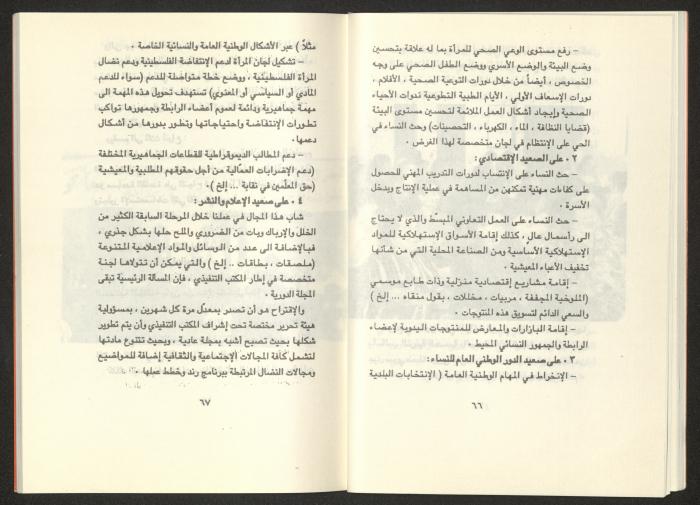 – رفع مستوى الوعي الصحي للمرأة بما له علاقة بتحسين
وضع البيئة والوضع الأسري ووضع الطفل الصحي على وجه
الخصوص ، أيضاً من خلال دورات التوعية الصحية ، الأفلام .
دورات الإسعاف الأولي ، الأيام الطبية التطوعية ندوات الأحياء
الصحية وإيجاد أشكال العمل الملائمة لتحسين مستوى البيئة
(قضايا النظافة ، الماء ، الكهرباء ، التحصينات) وحث النساء في
الحي على الإنتظام في لجان متخصصة لهذا الغرض .
٢ ٠ على الصعيد الإقتصادي :
– حث النساء على الإنتساب لدورات التدريب المهني للحصول
على كفاءات مهنية تمكنهن من المساهمة في عملية الإنتاج ويدخل
الأسرة .
– حث النساء على العمل التعاوني المبسّط والذي لا يحتاج
الى رأسمال عالٍ ، كذلك إقامة الأسواق الإستهلاكية للمواد
الإستهلاكية الأساسية ومن الصناعة المحلية التي من شأنها
تخفيف الأعباء المعيشية .
– إقامة مشاريع إقتصادية منزلية وذات طابع موسمي
(الملوخية المجففة ، مربيات ، مخللات ، بقول منقاه ... إلخ )
والسعي الدائم لتسويق هذه المنتوجات .
– إقامة البازارات والمعارض للمنتوجات اليدوية لإعضاء
الرابطة والجمهور النسائي المحيط .
٣ ٠ على صعيد الدور الوطني العام للنساء :
– الإنخراط في المهام الوطنية العامة ( الإنتخابات البلدية
٦٦
مثلاً ) عبر الأشكال الوطنية العامة والنسائية الخاصة .
– تشكيل لجان المرأة لدعم الإنتفاضة الفلسطينية ودعم نضال
المرأة الفلسطينية ، ووضع خطة متواصلة للدعم (سواء للدعم
المادي أو السياسي أو المعنوي) تستهدف تحويل هذه المهمة الى
مهمة جماهيرية ودائمة لعموم أعضاء الرابطة وجمهورها تواكب
تطورات الإنتفاضة واحتياجاتها وتطور بدورها من أشكال
دعمها .
– دعم المطالب الديموقراطية للقطاعات الجماهيرية المختلفة
(دعم الإضرابات العمّالية من أجل حقوقهم المطلبية والمعيشية
(حق المعلّمين في نقابة ... إلخ ) .
٤ ٠ على صعيد الإعلام والنشر :
شاب هذا المجال في عملنا خلال المرحلة السابقة الكثير من
الخلل والإرباك وبات من الضروري والملح حلها بشكل جذري ،
فبالإضافة الى عدد من الوسائل والمواد الإعلامية المتنوعة
(ملصقات ، بطاقات .. إلخ ) والتي يمكن أن تتولاها لجنة
متخصصة في إطار المكتب التنفيذي ، فإن المسألة الرئيسيّة تبقى
المجلة الدورية .
والإقتراح هو أن تصدر بمعدّل مرة كل شهرين ، بمسؤولية
هيئة تحرير مختصة تحت إشراف المكتب التنفيذي وأن يتم تطوير
شكلها بحيث تصبح أشبه بمجلة عادية ، وبحيث تتنوع مادتها
لتشمل كافة المجالات الإجتماعية والثقافية إضافة للمواضيع
ومجالات النضال المرتبطة ببرنامج رند وخطط عملها .
٦٧